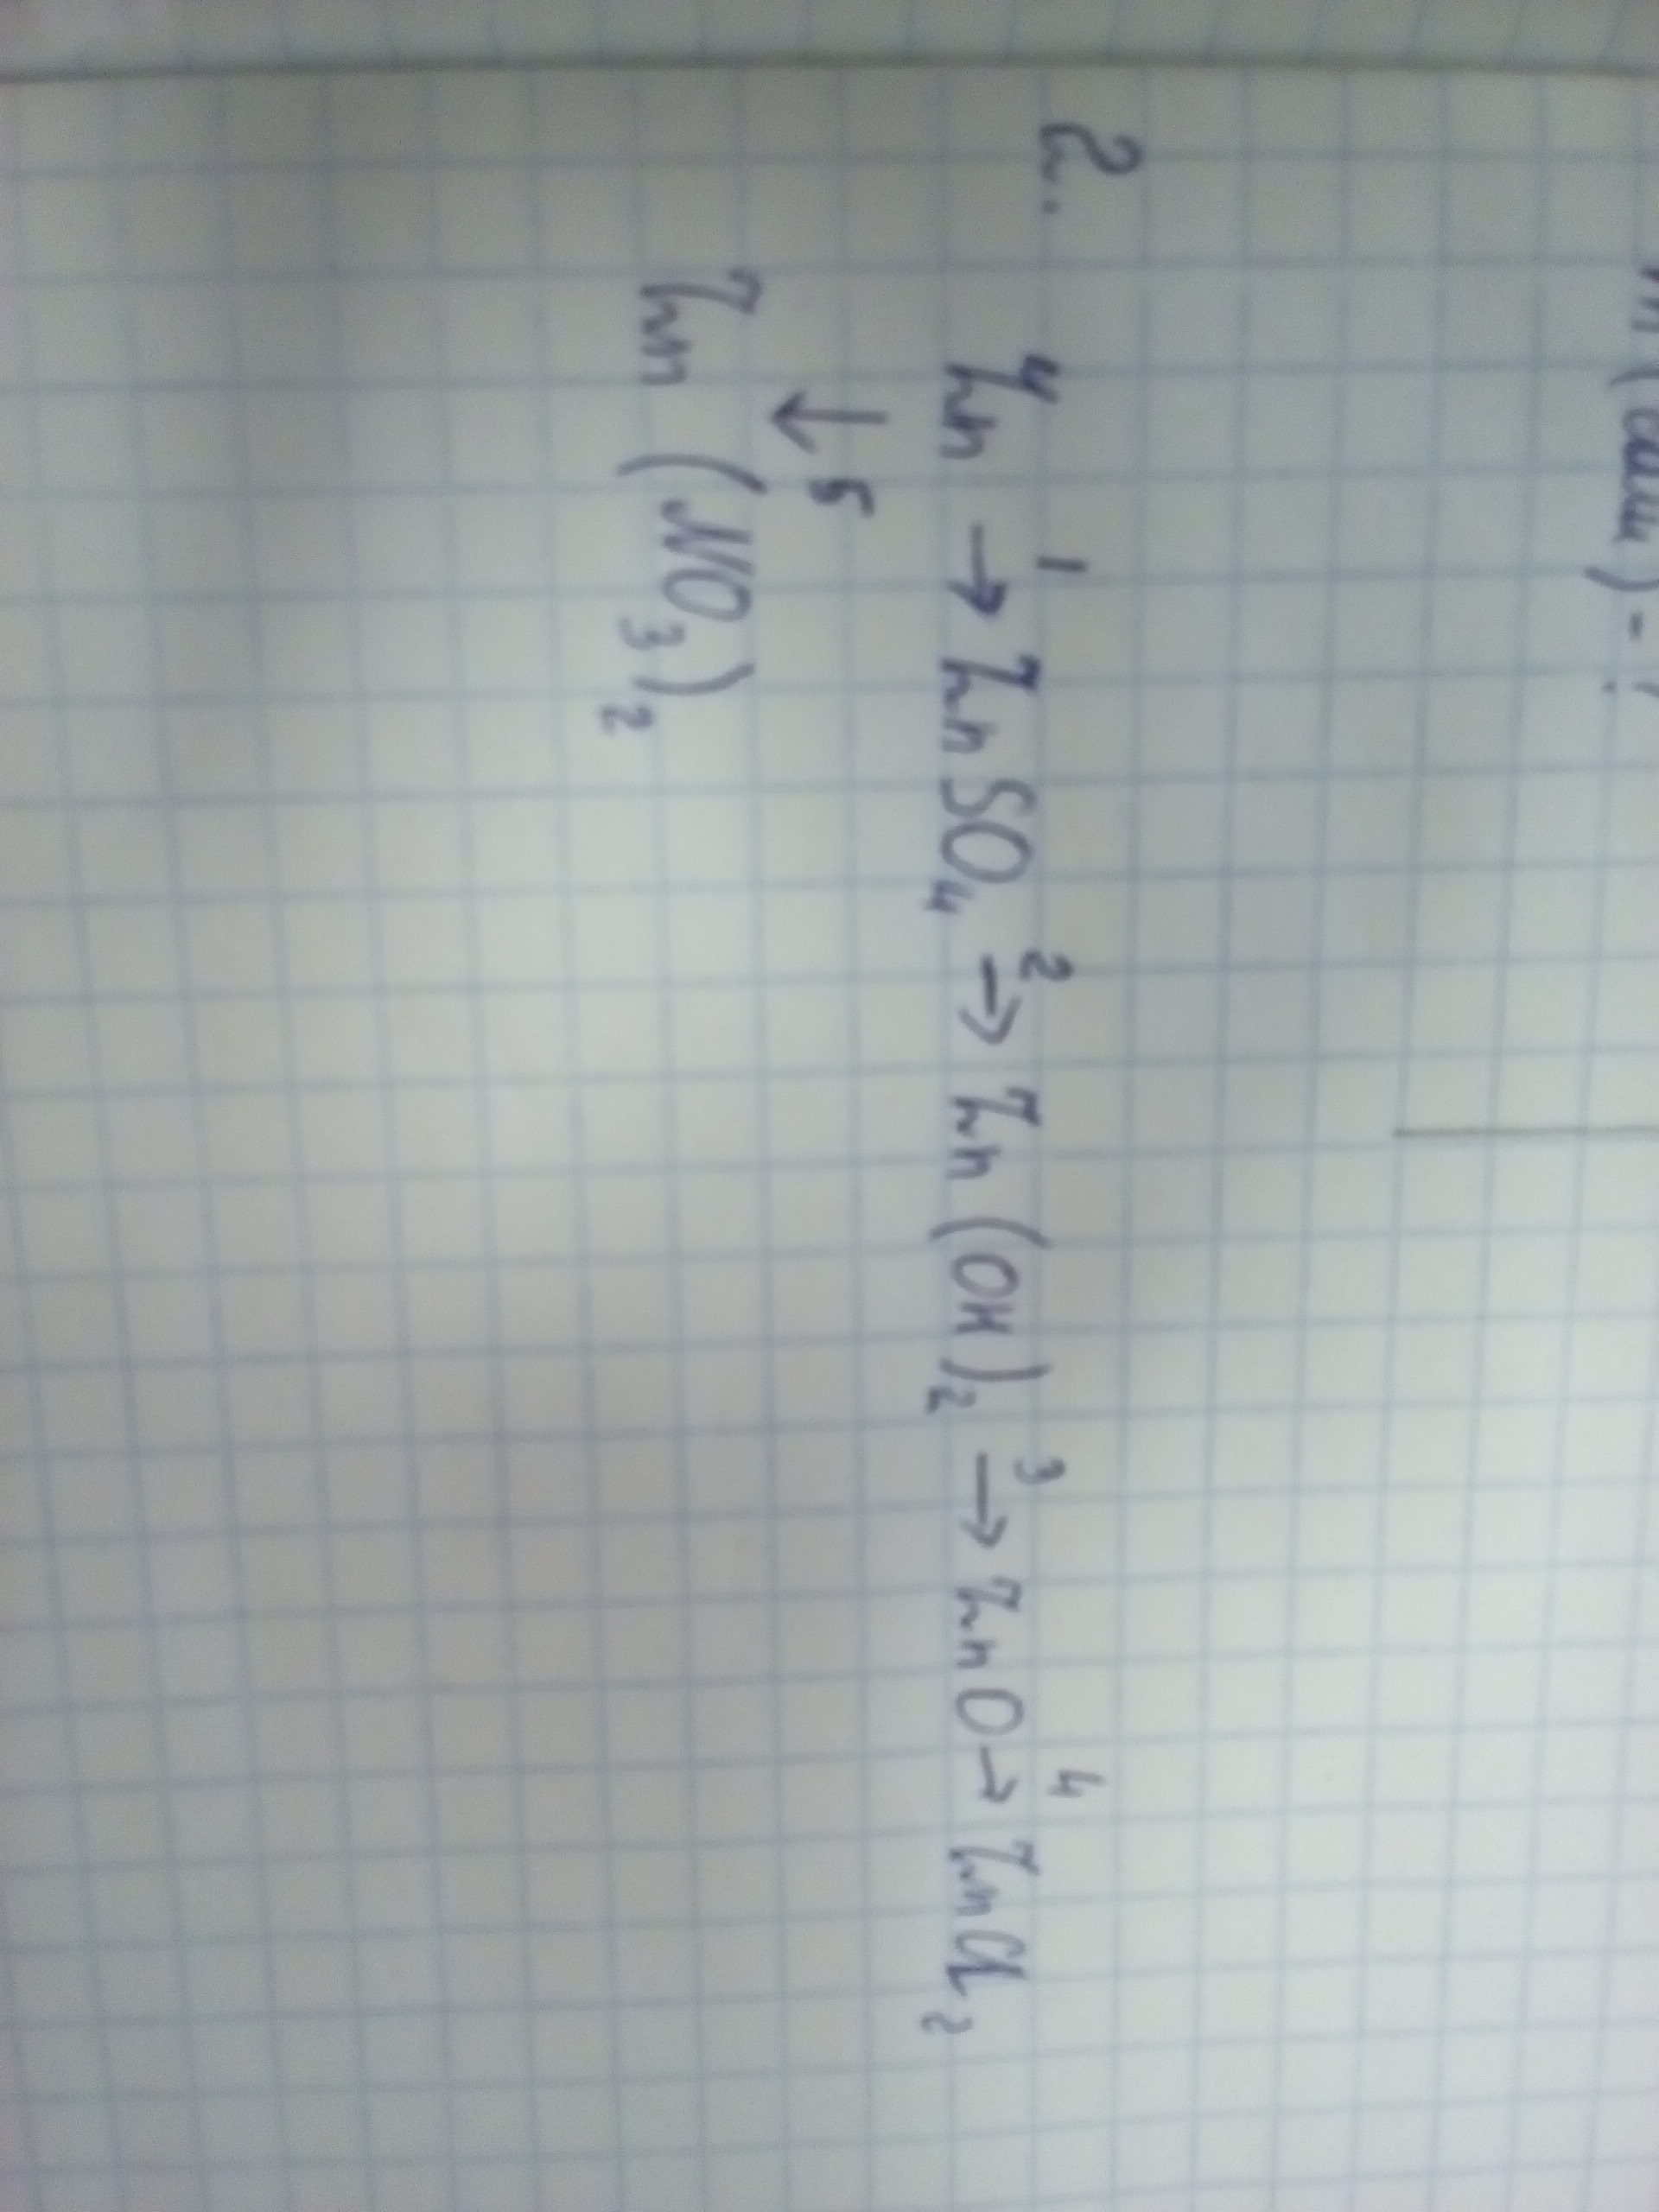 m (
) - ?
2. ⁴Zn →¹ ZnSO₄ →² Zn(OH)₂ →³ ZnO →⁴ ZnCl₂
↓ 5
Zn (NO₃)₂